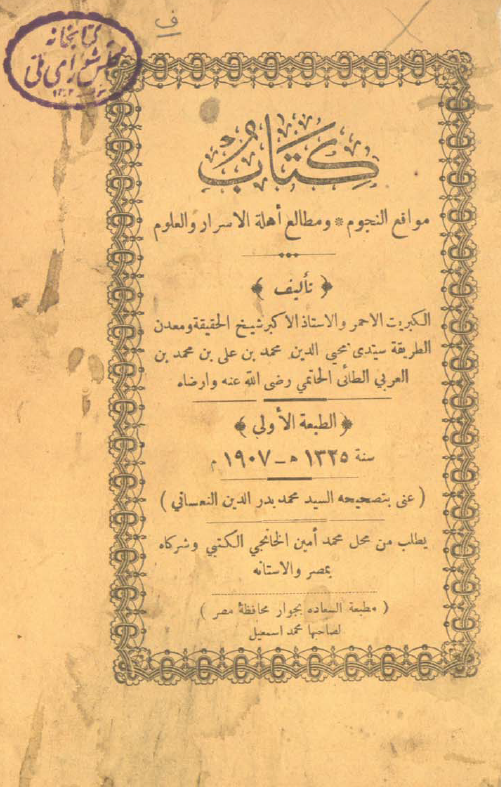 ف
كتابخانه
مجلس شورای ملی
كتاب
مواقع النجوم * ومطالع أهلة الاسرار والعلوم
﴿ تأليف ﴾
الكبريت الاحمر والاستاذ الاكبر شيخ الحقيقة ومعدن
الطريقة سيدى محيي الدين محمد بن على بن محمد بن
العربي الطائى الحاتمي رضى الله عنه وارضاه
﴿ الطبعة الأولى ﴾
سنة ١٣٢٥ ه – ١٩٠٧ م
( عنى بتصحيحه السيد محمد بدر الدين النعساني )
يطلب من محل محمد أمين الخانجي الكتبي وشركاه
بمصر والاستانه
( مطبعة السعاده بجوار محافظة مصر )
لصاحبها محمد اسمعيل